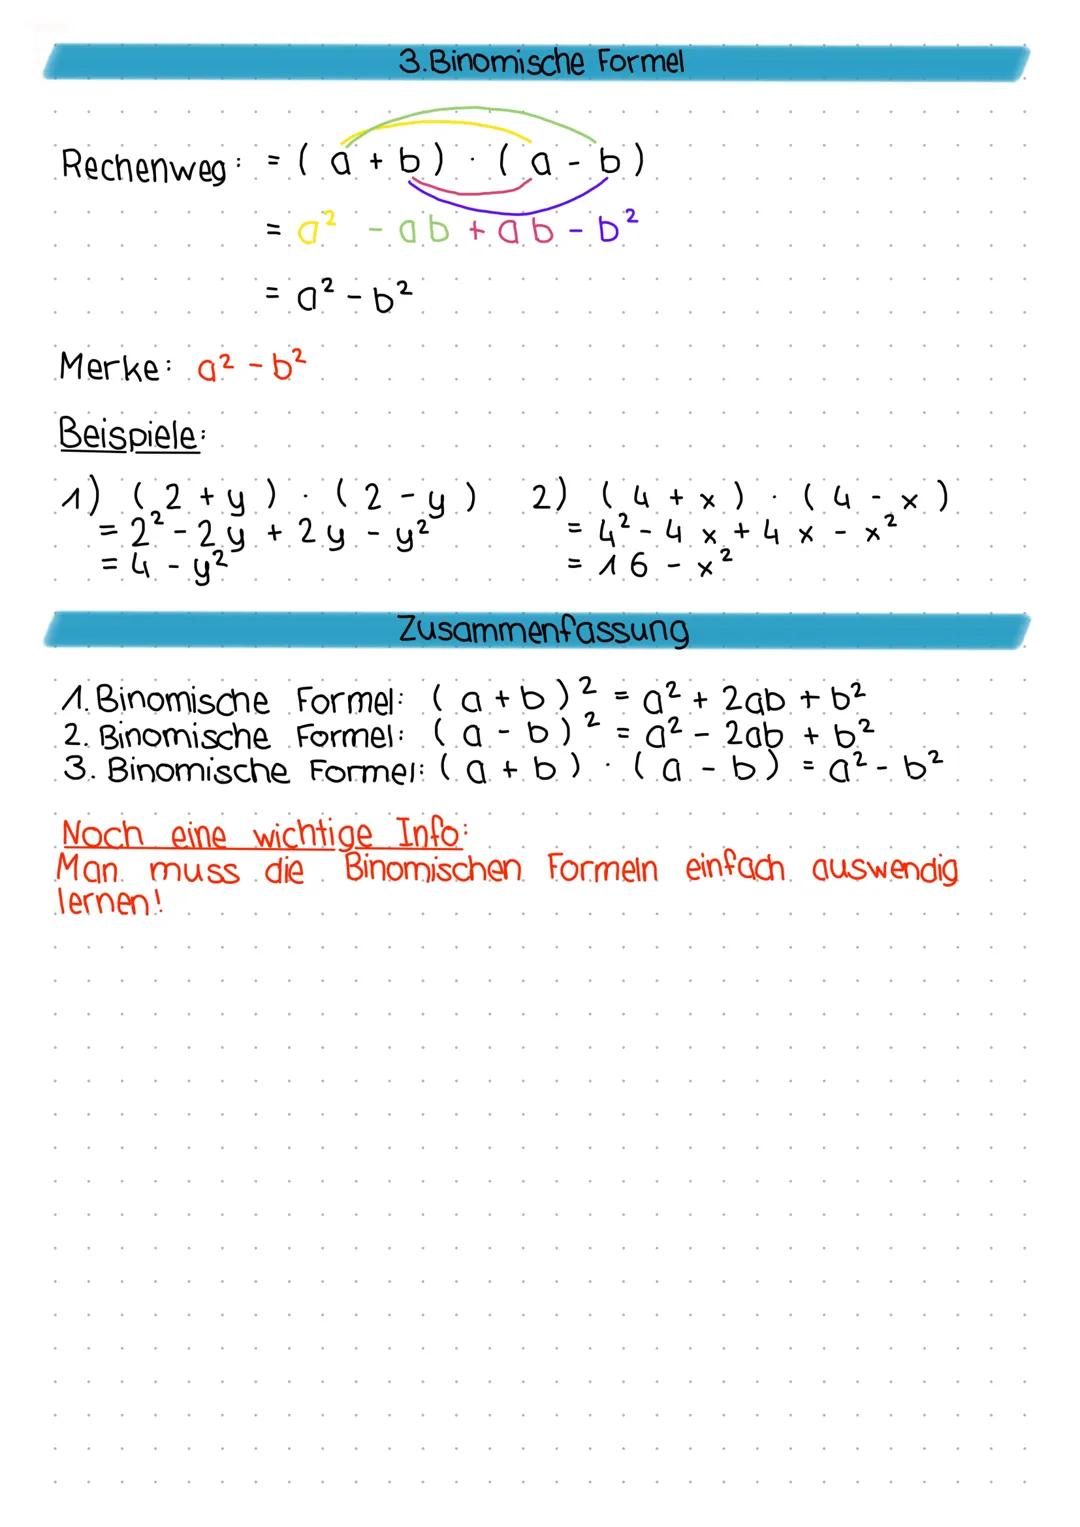 3.Binomische Formel
Rechenweg: = ( a + b ) · ( a - b )
= a² - ab + ab - b²
= a² - b²
Merke: a² - b²
Beispiele:
1) ( 2 + y ) · ( 2 - y )
= 2² - 2y + 2y - y²
= 4 - y²
2) ( 4 + x ) · ( 4 - x )
= 4² - 4x + 4x - x²
= 16 - x²
Zusammenfassung
1. Binomische Formel: ( a + b )² = a² + 2ab + b²
2. Binomische Formel: ( a - b )² = a² - 2ab + b²
3. Binomische Formel: ( a + b ) · ( a - b ) = a² - b²
Noch eine wichtige Info:
Man muss die Binomischen Formeln einfach auswendig
lernen!